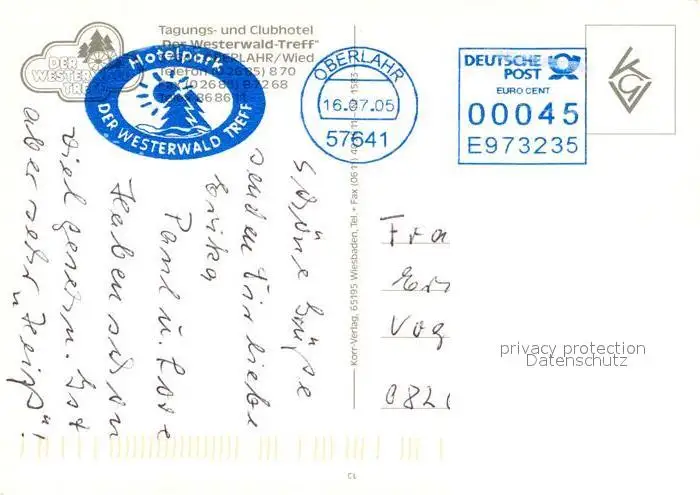 Tagungs- und Clubhotel
"Der Westerwald-Treff"
OBERLAHR/Wied
Telefon (02685) 870
Fax (02685) 87268
DER
WESTERWALD
TREFF
Hotelpark
DER WESTERWALD TREFF
OBERLAHR
16.07.05
57641
DEUTSCHE
POST
EURO CENT
00045
E973235
KVG
Schöne Grüße
senden Dir liebe
Erika
Paul u. Rose
Haben schon
viel gesehen. Ist
aber sehr "heiß"!
Korr-Verlag, 65195 Wiesbaden, Tel. + Fax (0611)
Fra
Er
Vog
082
privacy protection
Datenschutz
13